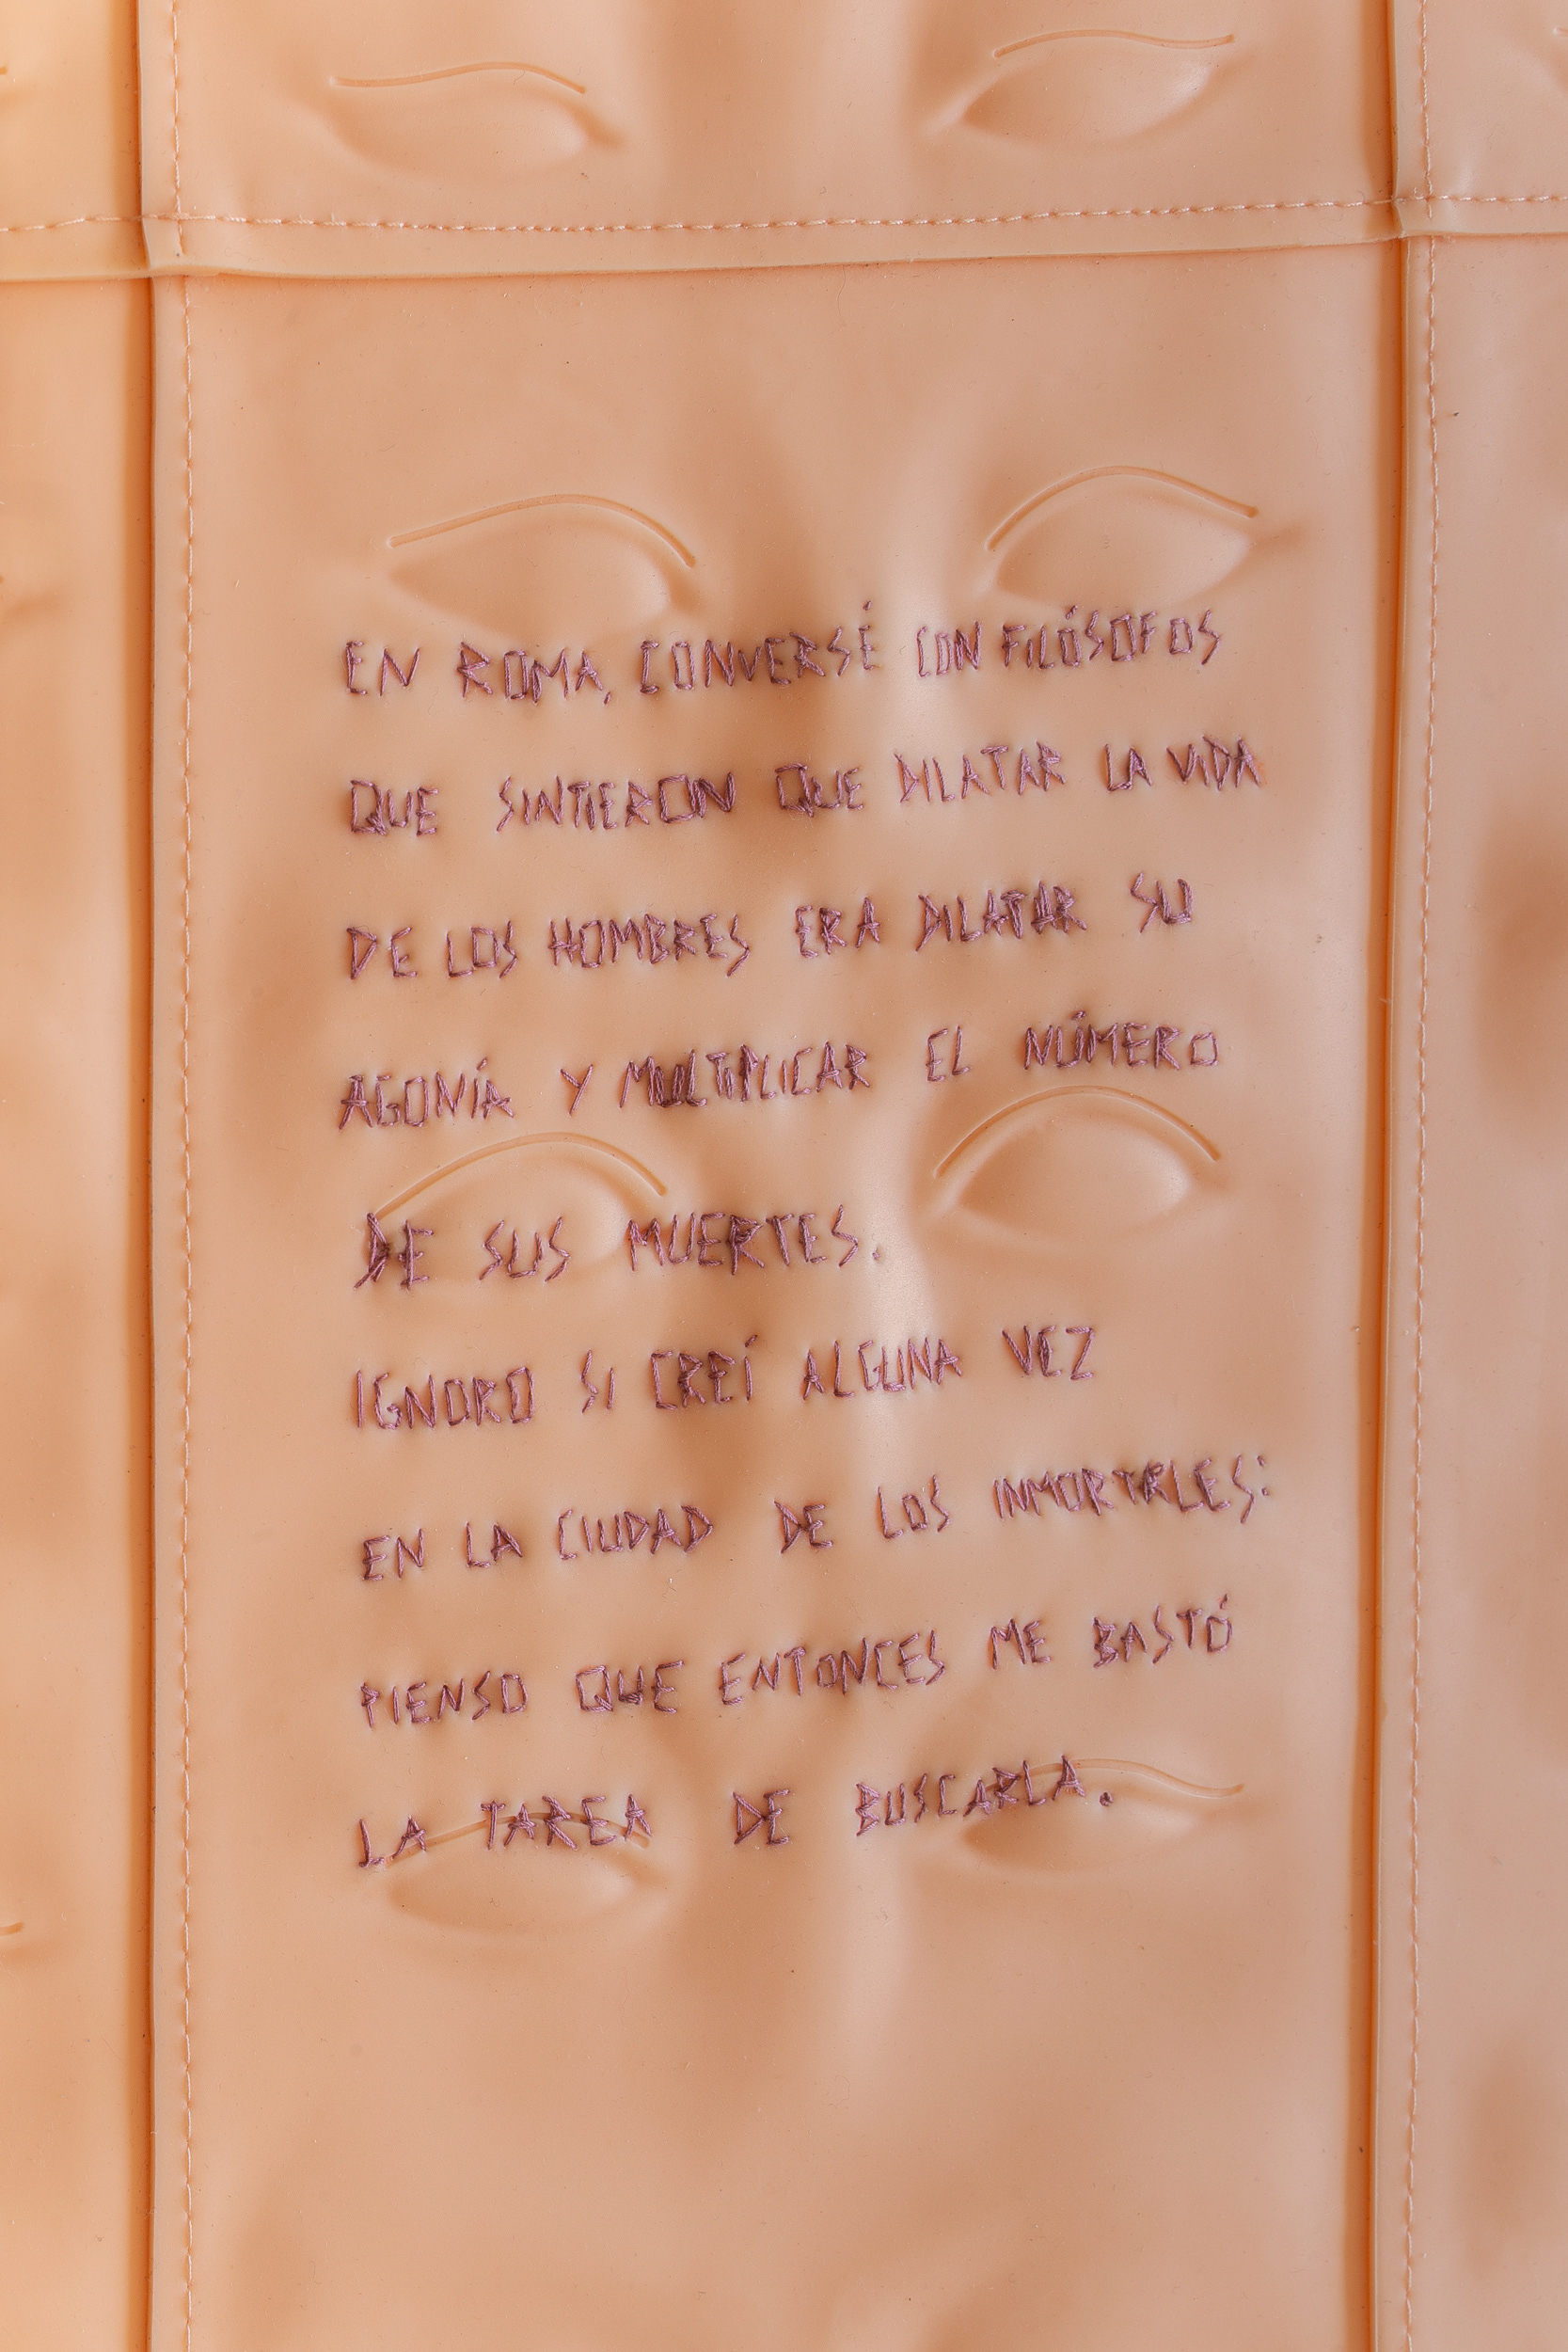 EN ROMA, CONVERSÉ CON FILÓSOFOS
QUE SINTIERON QUE DILATAR LA VIDA
DE LOS HOMBRES ERA DILATAR SU
AGONÍA Y MULTIPLICAR EL NÚMERO
DE SUS MUERTES.
IGNORO SI CREÍ ALGUNA VEZ
EN LA CIUDAD DE LOS INMORTALES:
PIENSO QUE ENTONCES ME BASTÓ
LA TAREA DE BUSCARLA.